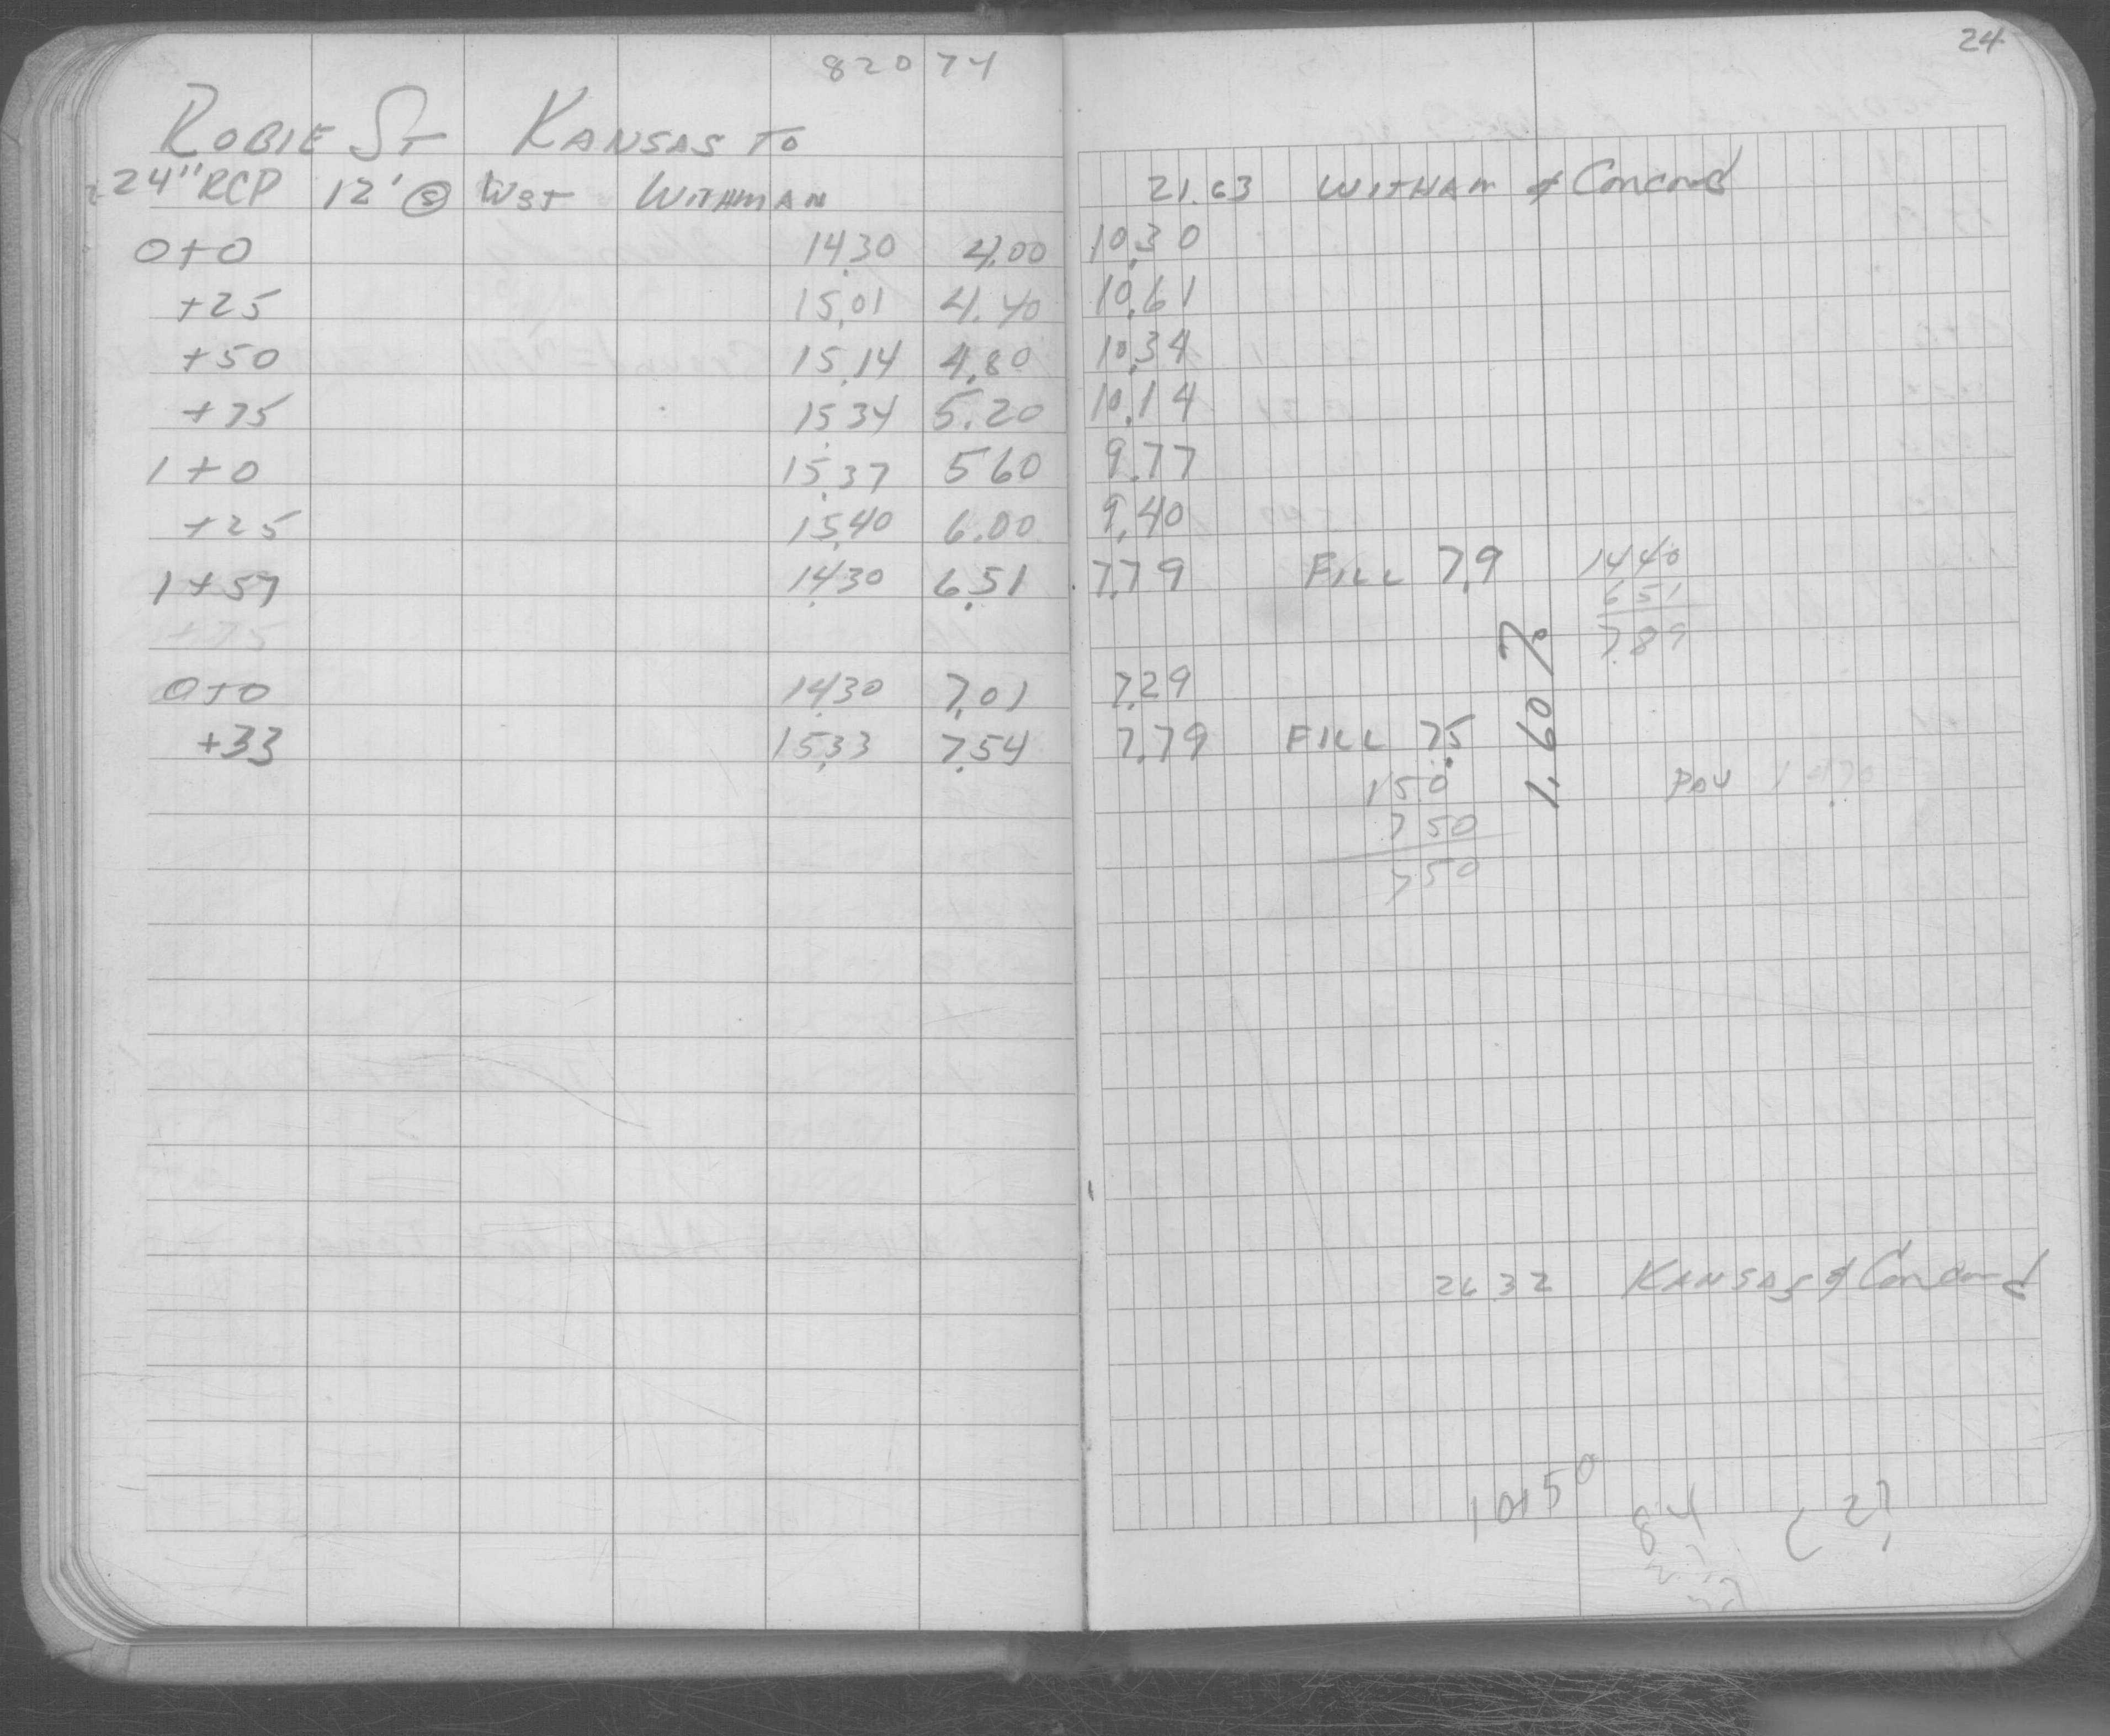 82074
ROBIE ST KANSAS TO
24" RCP 12' Ⓢ WST WITHMAN
0+0 14.30 4.00
+25 15.01 4.40
+50 15.14 4.80
+75 15.34 5.20
1+0 15.37 5 60
+25 15.40 6.00
1+57 14.30 6.51
+75
0+0 14.30 7.01
+33 15.33 7.54
24
21.63 WITHAM & Concord
10.30
10.61
10.34
10.14
9.77
9.40
7.79 FILL 7.9 1440
651
7.89
1.60 %
7.29
7.79 FILL 7.5
150
750
750
PAY
26.32 KANSAS & Concord
84